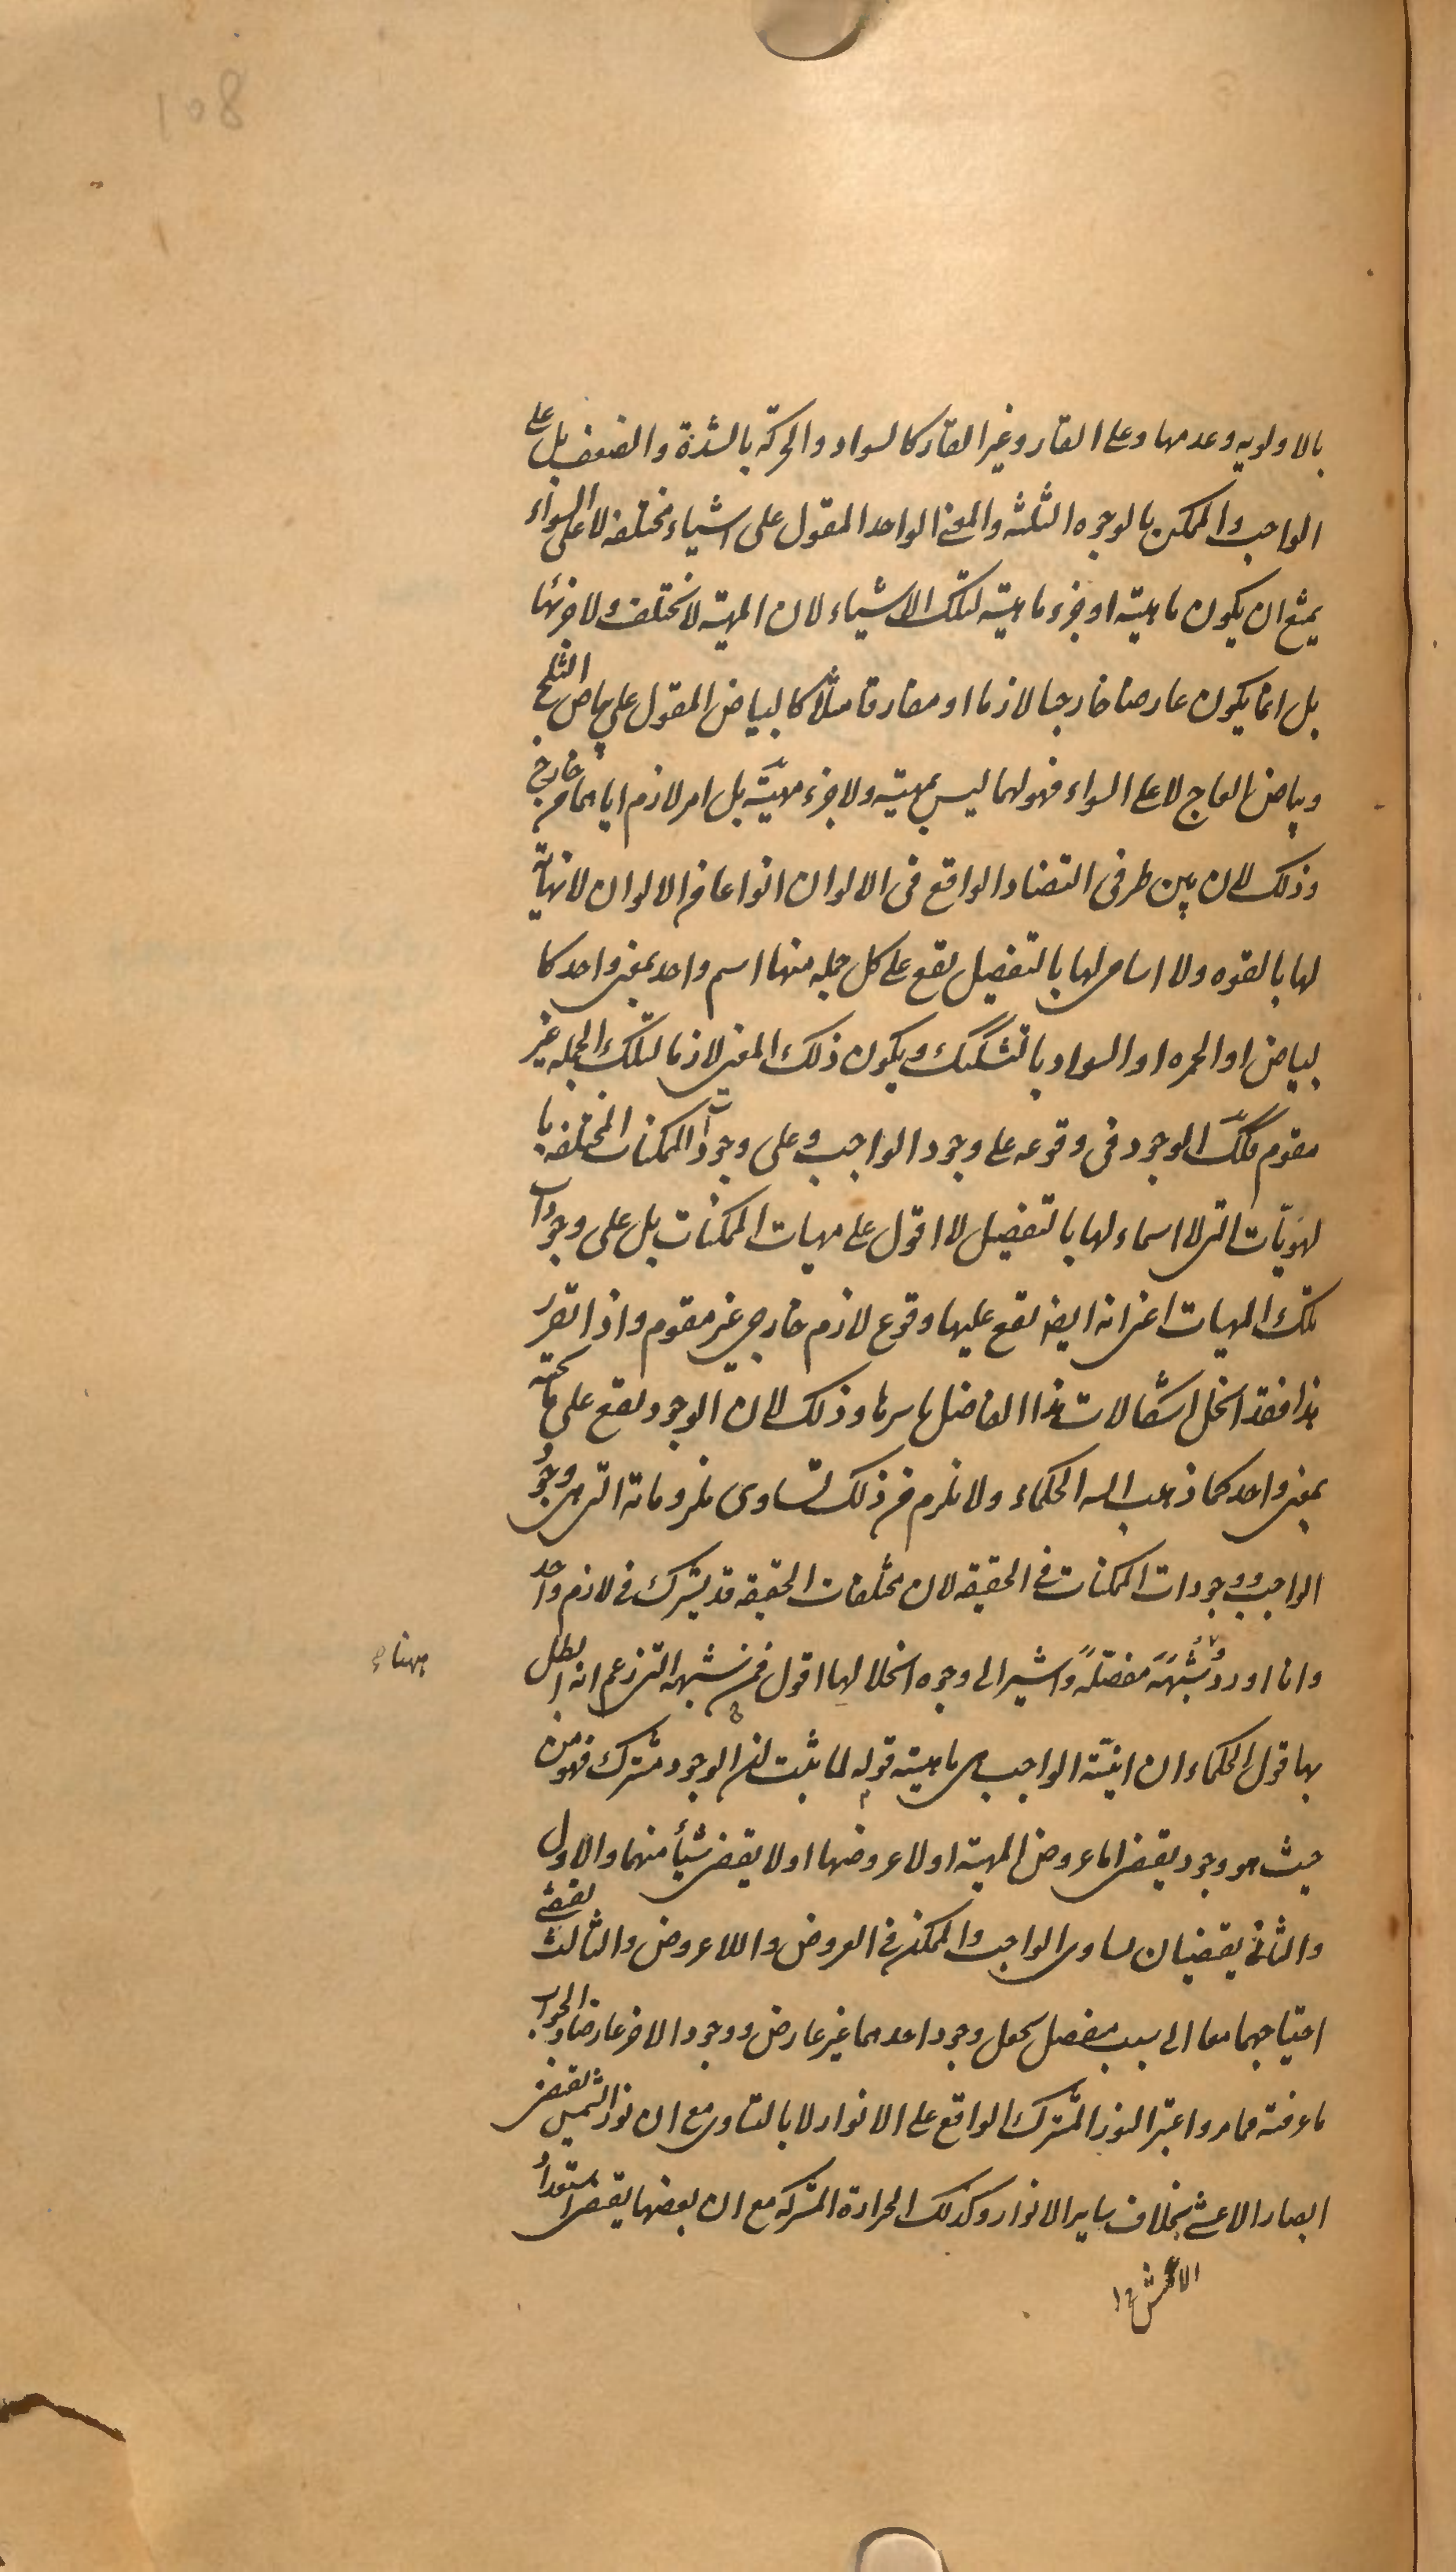 108
بالاولویه وعدمها وعلی القار وغیر القار کالسواد والحرکة بالشدة والضعف بل علی
الواجب والممکن بالوجوه الثلثه والمعنی الواحد المقول علی اشیاء مختلفه لا علی السواء
یمتنع ان یکون ماهیته او جزء ماهیته لتلک الاشیاء لان المهیته لا تختلف ولا جزئها
بل انما یکون عارضا خارجیا لازما او مفارقا مثلاً کالبیاض المقول علی بیاض الثلج
وبیاض العاج لا علی السواء فهو لهما لیس بمهیته ولا جزء مهیّته بل امر لازم ایاهما من خارج
وذلک لان بین طرفی التضاد الواقع فی الالوان انواعا من الالوان لا نهایة
لها بالقوه ولا اسامی لها بالتفصیل یقع علی کل جمله منها اسم واحد بمعنی واحد کا
لبیاض او الحمره او السواد بالتشکیک ویکون ذلک المعنی لازما لتلک الجمله غیر
مقوم فکذلک الوجود فی وقوعه علی وجود الواجب وعلی وجودات الممکنات المختلفه با
لهویّات التی لا اسماء لها بالتفصیل لا اقول علی مهیات الممکنات بل علی وجودات
تلک المهیات اعنی انه ایضا یقع علیها وقوع لازم خارجی غیر مقوم واذا تقرر
هذا فقد انحل اشکالات هذا الفاضل باسرها وذلک لان الوجود یقع علی ما تحته
بمعنی واحد کما ذهب الیه الحکماء ولا یلزم من ذلک تساوی ملزوماته التی هی وجود
الواجب ووجودات الممکنات فی الحقیقه لان مختلفات الحقیقه قد یشترک فی لازم واحد
وانا اورد شُبَهَهُ مفصّلَةً واشیر الی وجوه انحلالها اقول فمن شبهه التی زعم انه ابطل
بها قول الحکماء ان انیّته الواجب هی ماهیته قوله لما ثبت ان الوجود مشترک فهو من
حیث هو وجود یقتضی اما عروض المهیته او لا عروضها او لا یقتضی شیأ منهما والاول
والثانی یقتضیان تساوی الواجب والممکن فی العروض واللاعروض والثالث یقتضی
احتیاجهما معا الی سبب منفصل یجعل وجود احدهما غیر عارض ووجود الاخر عارضا والجواب
ما عرفته مما مر واعتبر النور المشترک الواقع علی الانوار لا بالتساوی مع ان نور الشمس یقتضی
ابصار الاعشی بخلاف سایر الانوار وکذلک الحرارة المشترکه مع ان بعضها یقتضی استعداد